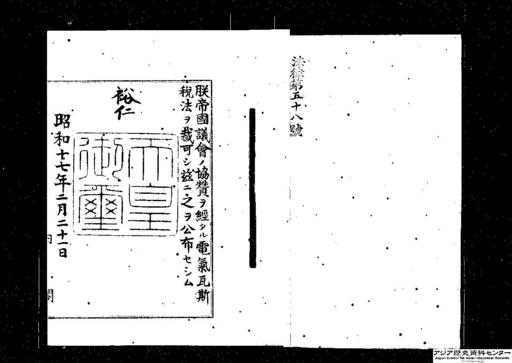 法律第五十八號
朕帝國議會ノ協贊ヲ經タル電氣瓦斯
稅法ヲ裁可シ茲ニ之ヲ公布セシム
裕仁
天皇
御璽
昭和十七年二月二十一日
内閣
アジア歴史資料センター
Japan Center for Asian Historical Records